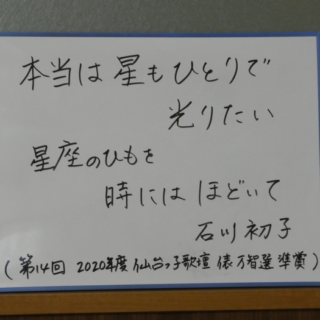 本当は星もひとりで
光りたい
星座のひもを
時にはほどいて
石川初子
(第14回 2020年度仙台っ子歌壇 俵万智選準賞)